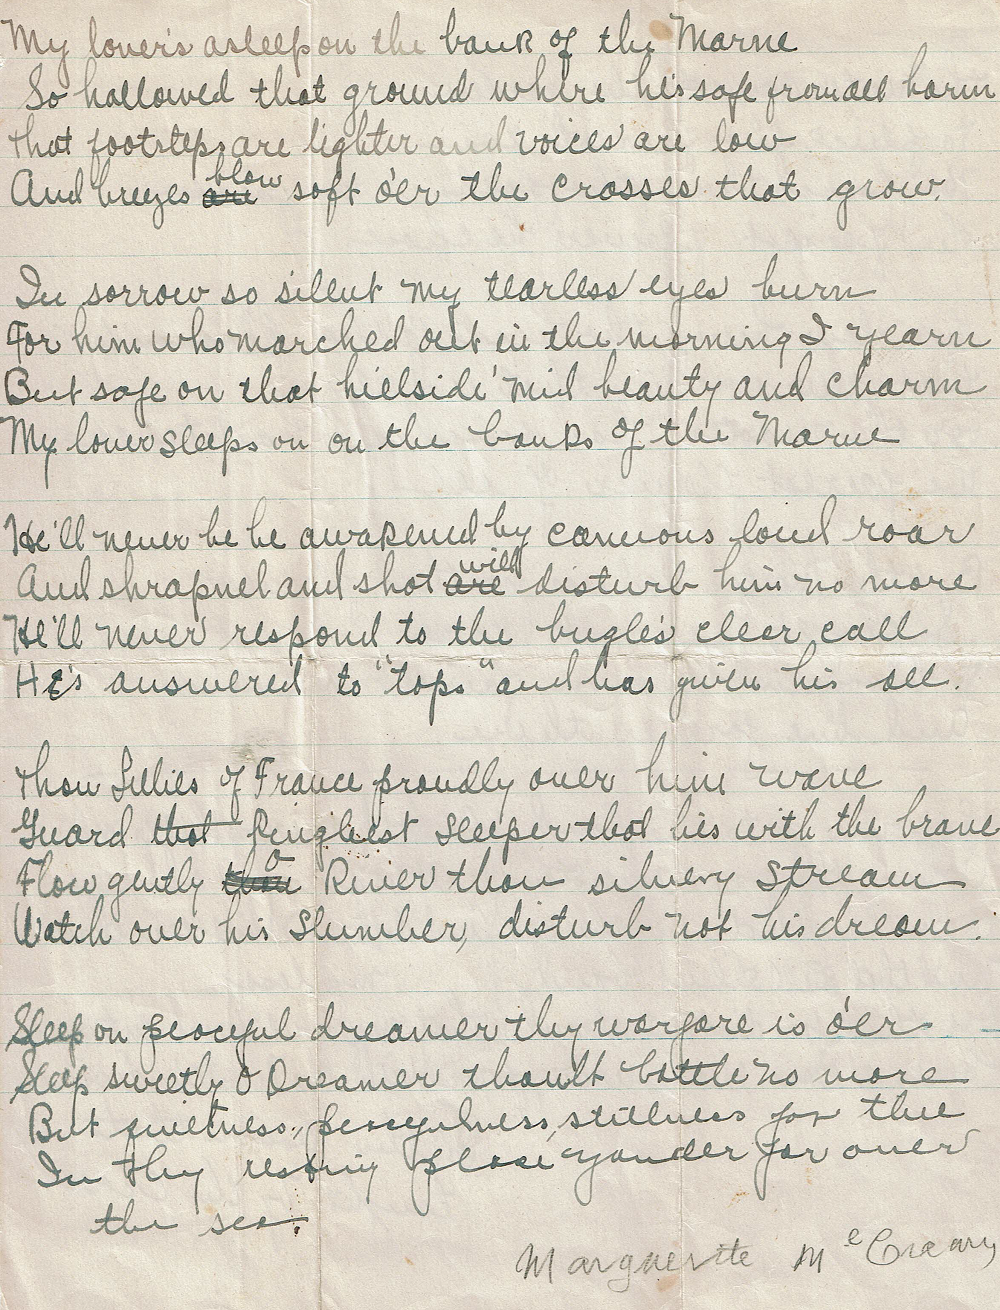 My lover's asleep on the bank of the Marne
So hallowed that ground where he's safe from all harm
that footsteps are lighter and voices are low
And breezes are blow soft o'er the crosses that grow.
In sorrow so silent my tearless eyes burn
For him who marched out in the morning I yearn
But safe on that hillside 'mid beauty and charm
My lover sleeps on on the banks of the Marne
He'll never be be awakened by cannons loud roar
And shrapnel and shot are will disturb him no more
He'll never respond to the bugle's clear call
He's answered to "taps" and has given his all.
Thou Lillies of France proudly over him wave
Guard that sleeper that his with the brave
Flow gently thou O River thou silvery stream
Watch over his slumber, disturb not his dream.
Sleep on peaceful dreamer thy warfare is o'er
Sleep sweetly O Dreamer thoult battle no more
But quietness, peacefulness, stillness for thee
In thy resting place yonder far over
the sea.
Marguerite McCreary